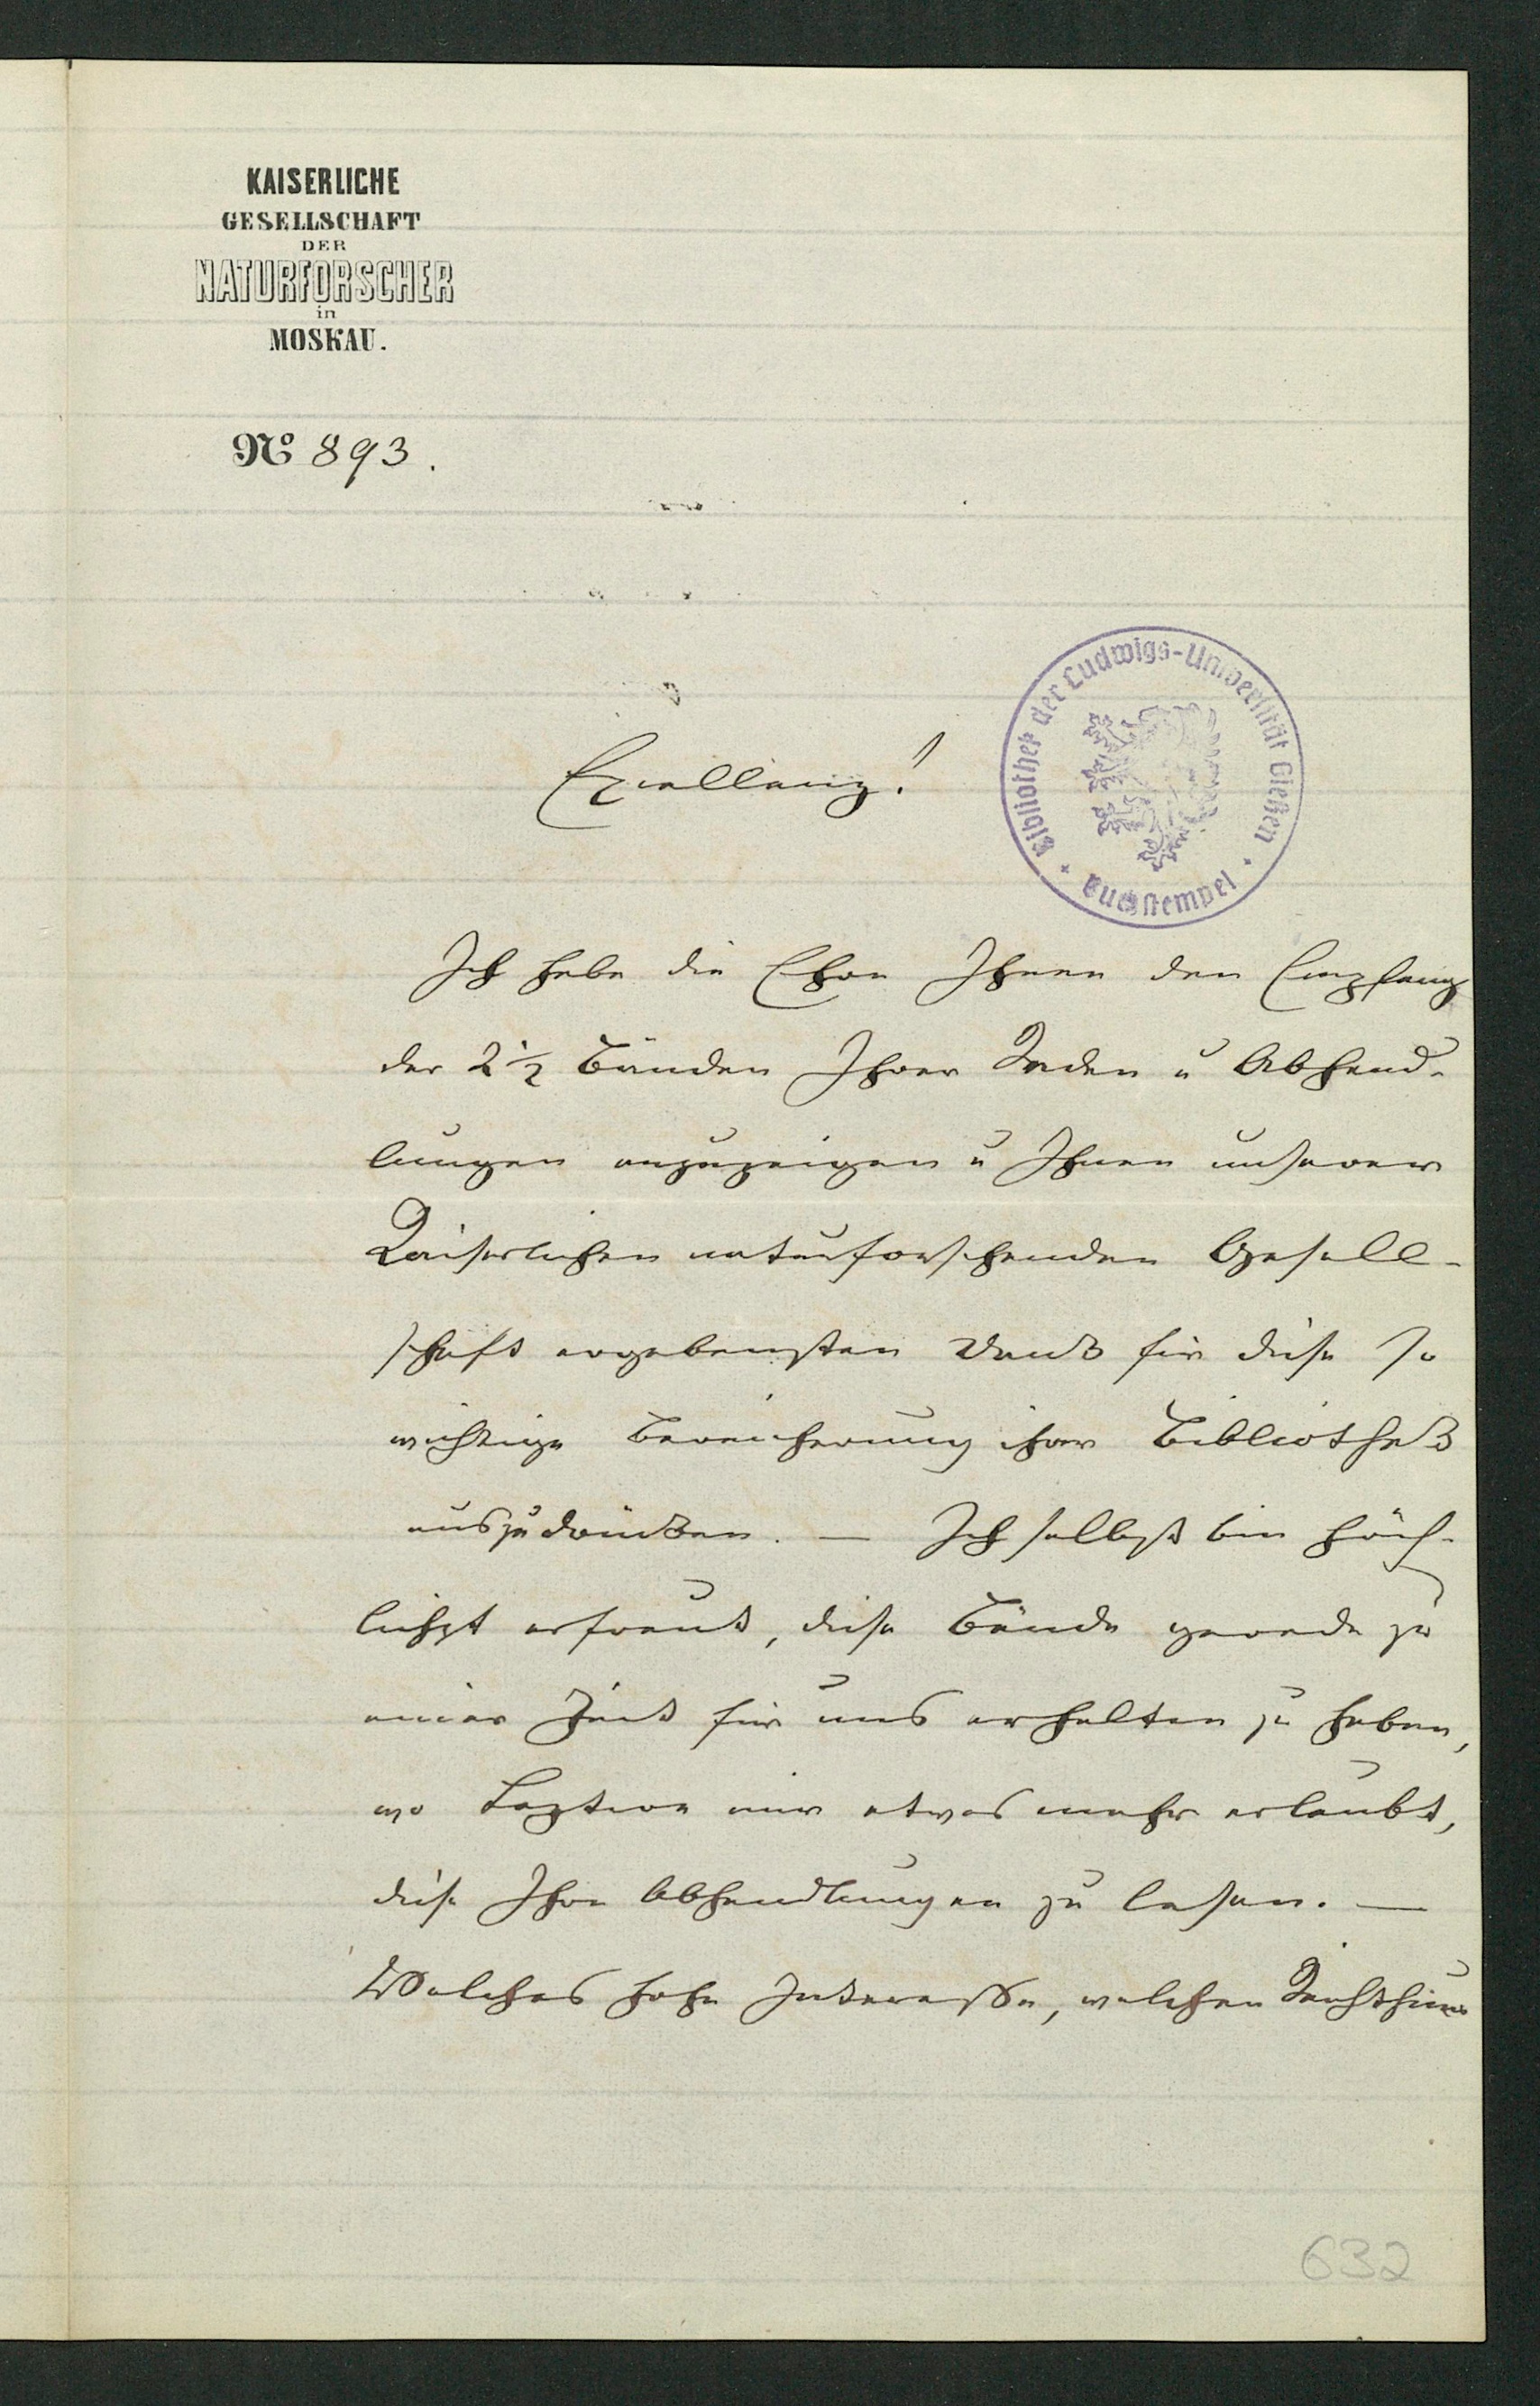 KAISERLICHE
GESELLSCHAFT
DER
NATURFORSCHER
in
MOSKAU.
No 893.
Excellenz!
Bibliothek der Ludwigs-Universität Gießen
Buchstempel
Ich habe die Ehre Ihnen den Empfang
der 2 1/2 Bänden Ihrer Reden u Abhand-
lungen anzuzeigen u Ihnen unserer
Kaiserlichen naturforschenden Gesell-
schaft ergebensten Dank für diese so
wichtige Bereicherung ihrer Bibliothek
auszudrücken. — Ich selbst bin höch-
lichst erfreut, diese Bände gerade zu
einer Zeit für uns erhalten zu haben,
wo mir etwas mehr erlaubt,
diese Ihre Abhandlungen zu lesen. —
Welches hohe Interesse, welchen Reichthum
632